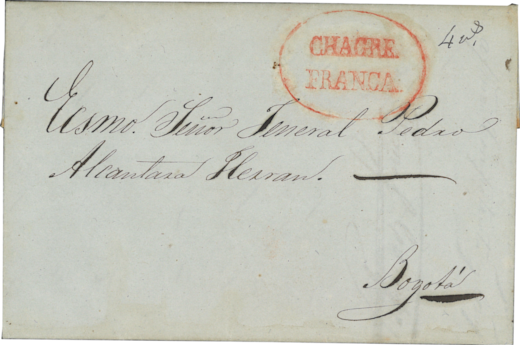 CHAGRE
FRANCA.
4 rs.
Ecsmo. Señor Jeneral Pedro
Alcantara Herran.
Bogotá